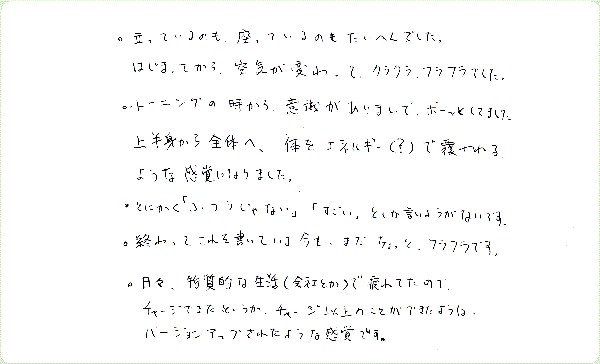 。立っているのも、座っているのもたいへんでした。
はじまってから、空気が変わって、クラクラ、フラフラでした。
。トーニングの時から、意識があいまいで、ボーッとしてました
上半身から全体へ、体をエネルギー(?)で覆われる
ような感覚になりました。
*とにかく「ふつうじゃない」「すごい」としか言いようがないです。
。終わってこれを書いている今も、まだちょっと、フラフラです。
。日々、物質的な生活(会社とか)で疲れてたので、
チャージできたというか、チャージ以上のことができたような、
バージョンアップされたような感覚です。